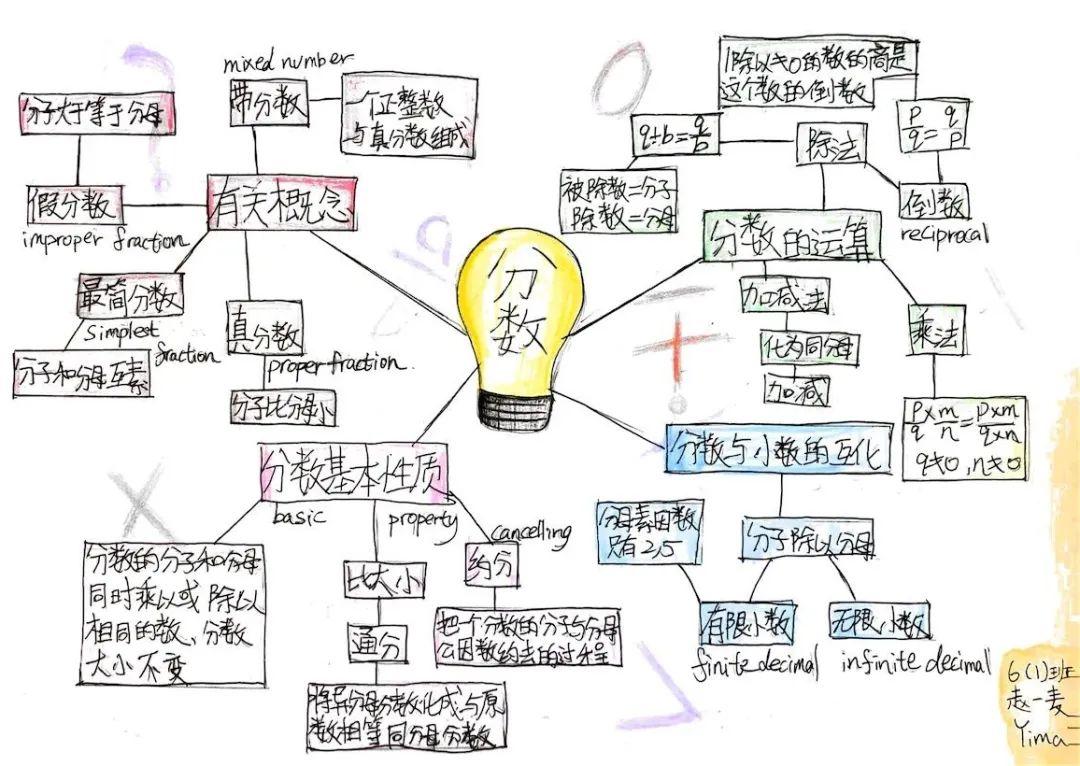 分数
有关概念
mixed number
带分数
一个正整数
与真分数组成
分子大于等于分母
假分数
improper fraction
最简分数
simplest
fraction
分子和分母互素
真分数
proper fraction.
分子比分母小
分数的运算
除法
1除以≠0的数的商是
这个数的倒数
q÷b=q/b
被除数=分子
除数=分母
p/q=q/p
倒数
reciprocal
加减法
化为同分母
加减
乘法
p×m/q n=p×m/q×n
q≠0,n≠0
分数基本性质
basic property
分数的分子和分母
同时乘以或除以
相同的数、分数
大小不变
比大小
通分
将异分母分数化成与原
数相等同分母分数
cancelling
约分
把一个分数的分子与分母
公因数约去的过程
分数与小数的互化
分子除以分母
分母素因数
只有2,5
有限小数
finite decimal
无限小数
infinite decimal
6(1)班
赵一麦
Yima